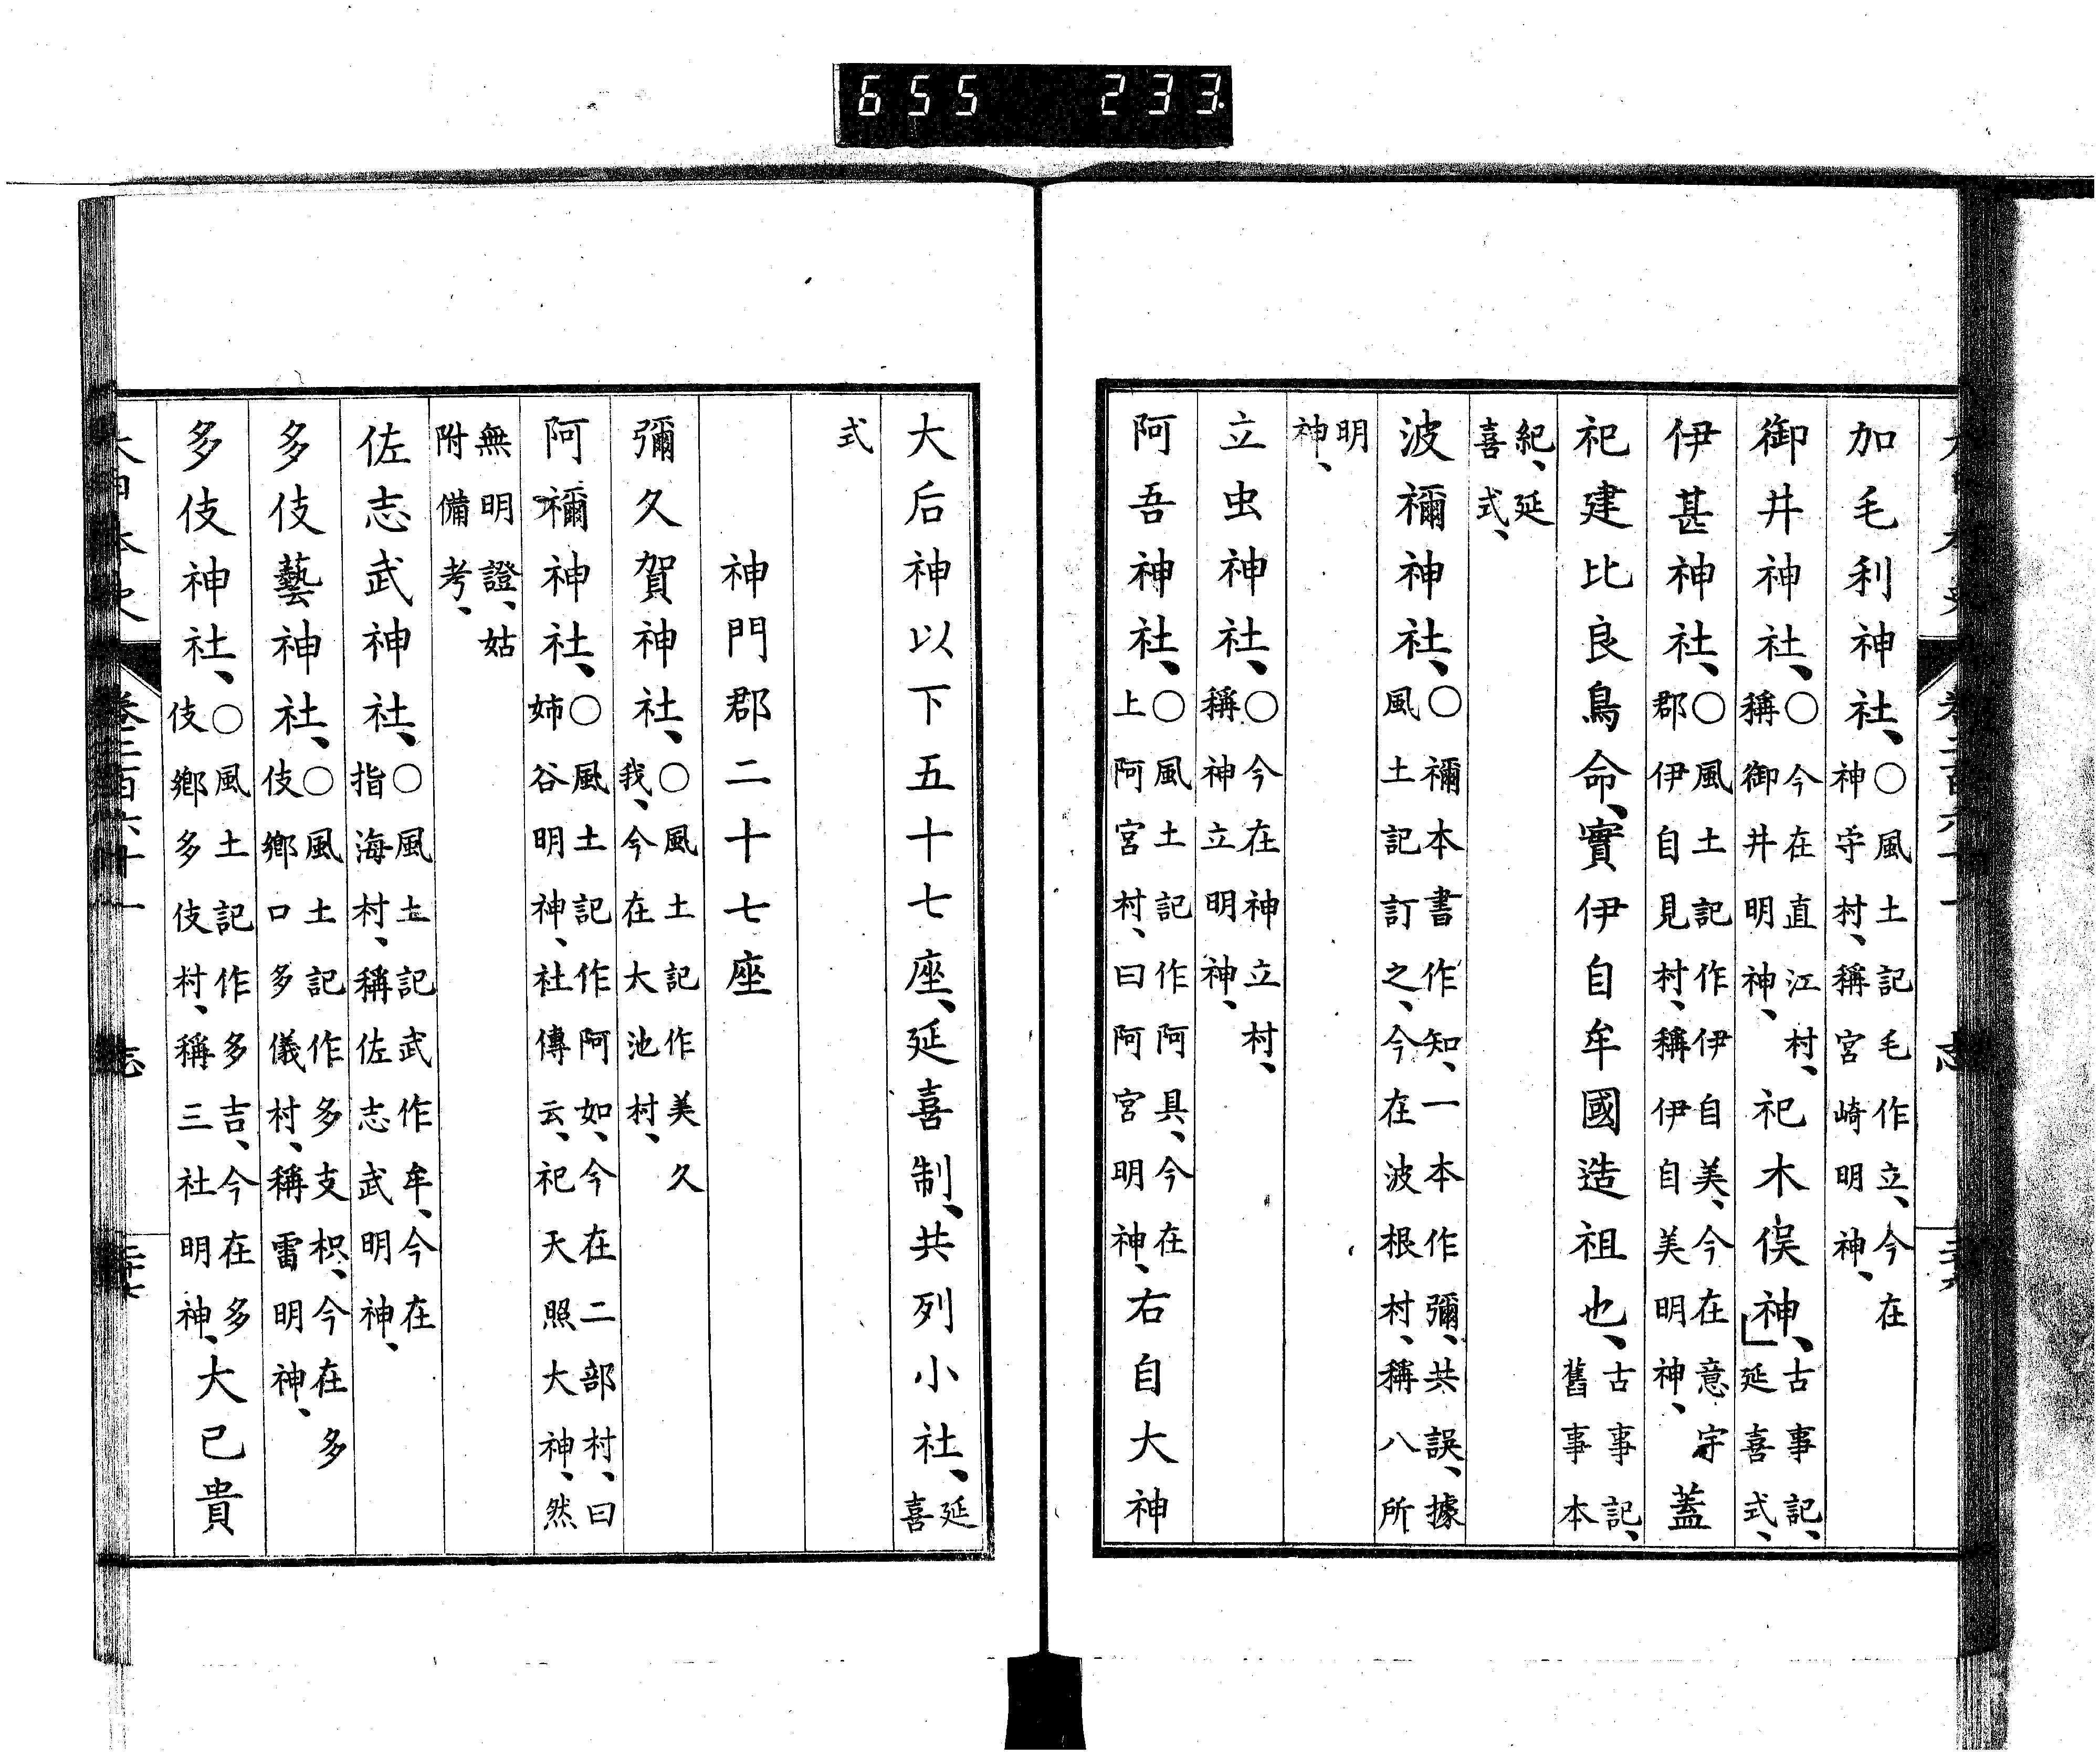 655 233.
加毛利神社、○風土記毛作立、今在神守村、稱宮崎明神、
御井神社、○今在直江村、稱御井明神、祀木俣神、古事記、延喜式、
伊甚神社、○風土記作伊自美、今在意宇郡伊自見村、稱伊自美明神、蓋
祀建比良鳥命、實伊自牟國造祖也、古事記、舊事本
紀、延喜式、
波禰神社、○禰本書作知、一本作彌、共誤、據風土記訂之、今在波根村、稱八所
明神、
立虫神社、○今在神立村、稱神立明神、
阿吾神社、○風土記作阿具、今在上阿宮村、曰阿宮明神、右自大神
大后神以下五十七座、延喜制、共列小社、延喜
式
神門郡二十七座
彌久賀神社、○風土記作美久我、今在大池村、
阿禰神社、○風土記作阿如、今在二部村、曰姉谷明神、社傳云、祀天照大神、然
無明證、姑附備考、
佐志武神社、○風土記武作牟、今在指海村、稱佐志武明神、
多伎藝神社、○風土記作多支枳、今在多伎鄉口多儀村、稱雷明神、
多伎神社、○風土記作多吉、今在多伎鄉多伎村、稱三社明神、大己貴
大日本史 卷二百六十一 志